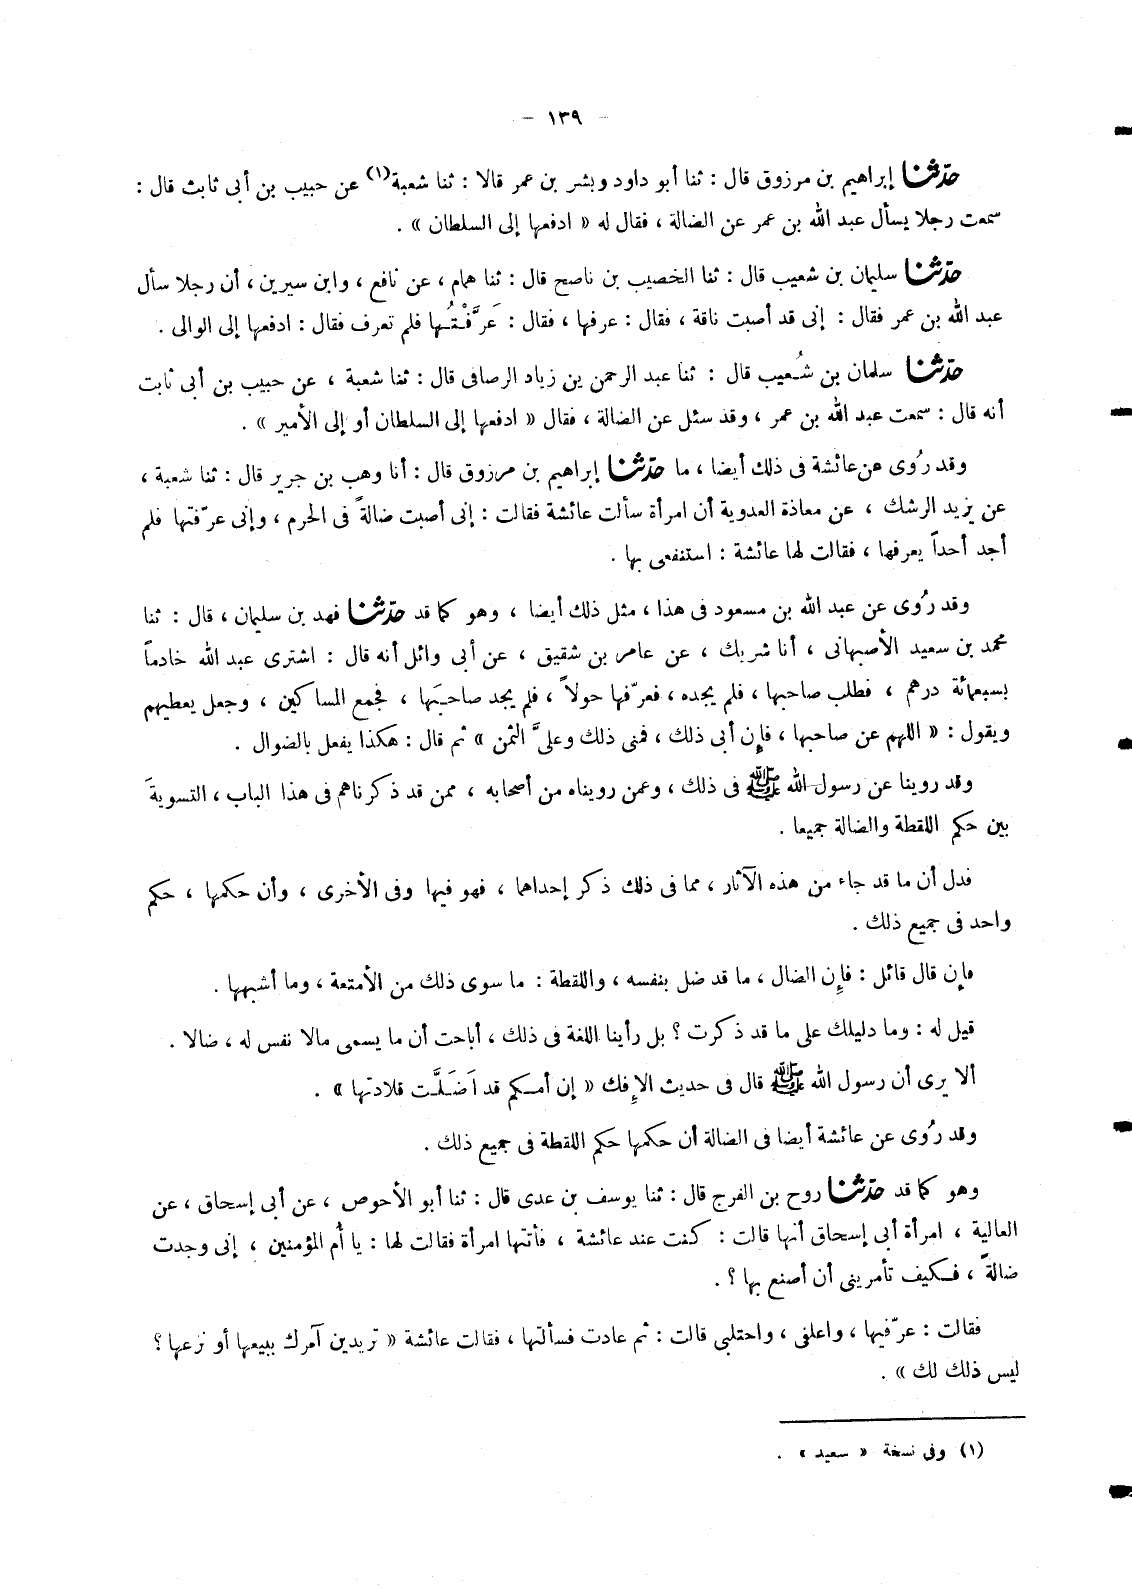 – ١٣٩ –
حدّثنا إبراهيم بن مرزوق قال : ثنا أبو داود وبشر بن عمر قالا : ثنا شعبة(١) عن حبيب بن أبى ثابت قال :
سمعت رجلا يسأل عبد الله بن عمر عن الضالة ، فقال له « ادفعها إلى السلطان » .
حدّثنا سليمان بن شعيب قال : ثنا الخصيب بن ناصح قال : ثنا همام ، عن نافع ، وابن سيرين ، أن رجلا سأل
عبد الله بن عمر فقال : إنى قد أصبت ناقة ، فقال : عرفها ، فقال : عَرَّفْتُها فلم تعرف فقال : ادفعها إلى الوالى .
حدّثنا سلمان بن شُعيب قال : ثنا عبد الرحمن بن زياد الرصافى قال : ثنا شعبة ، عن حبيب بن أبى ثابت
أنه قال : سمعت عبد الله بن عمر ، وقد سئل عن الضالة ، فقال « ادفعها إلى السلطان أو إلى الأمير » .
وقد رُوى عن عائشة فى ذلك أيضا ، ما حدّثنا إبراهيم بن مرزوق قال : أنا وهب بن جرير قال : ثنا شعبة ،
عن يزيد الرشك ، عن معاذة العدوية أن امرأة سألت عائشة فقالت : إنى أصبت ضالةً فى الحرم ، وإنى عرّفتها فلم
أجد أحداً يعرفها ، فقالت لها عائشة : استنفعى بها .
وقد رُوى عن عبد الله بن مسعود فى هذا ، مثل ذلك أيضا ، وهو كما قد حدّثنا فهد بن سليمان ، قال : ثنا
محمد بن سعيد الأصبهانى ، أنا شريك ، عن عامر بن شقيق ، عن أبى وائل أنه قال : اشترى عبد الله خادماً
بسبعمائة درهم ، فطلب صاحبها ، فلم يجده ، فعرّفها حولاً ، فلم يجد صاحبَها ، فجمع المساكين ، وجعل يعطيهم
ويقول : « اللهم عن صاحبها ، فإن أبى ذلك ، فمنى ذلك وعلىَّ الثمن » ثم قال : هكذا يفعل بالضوال .
وقد روينا عن رسول الله ﷺ فى ذلك ، وعمن رويناه من أصحابه ، ممن قد ذكرناهم فى هذا الباب ، التسويةَ
بين حكم اللقطة والضالة جميعا .
فدل أن ما قد جاء من هذه الآثار ، مما فى ذلك ذكر إحداهما ، فهو فيها وفى الأخرى ، وأن حكمها ، حكم
واحد فى جميع ذلك .
فإن قال قائل : فإن الضال ، ما قد ضل بنفسه ، واللقطة : ما سوى ذلك من الأمتعة ، وما أشبهها .
قيل له : وما دليلك على ما قد ذكرت ؟ بل رأينا اللغة فى ذلك ، أباحت أن ما يسمى مالا نفس له ، ضالا .
ألا يرى أن رسول الله ﷺ قال فى حديث الإفك « إن أمكم قد اَضَلَّت قلادتها » .
وقد رُوى عن عائشة أيضا فى الضالة أن حكمها حكم اللقطة فى جميع ذلك .
وهو كما قد حدّثنا روح بن الفرج قال : ثنا يوسف بن عدى قال : ثنا أبو الأحوص ، عن أبى إسحاق ، عن
العالية ، امرأة أبى إسحاق أنها قالت : كنت عند عائشة ، فأتتها امرأة فقالت لها : يا أُم المؤمنين ، إنى وجدت
ضالةً ، فكيف تأمرينى أن أصنع بها ؟ .
فقالت : عرّفيها ، واعلفى ، واحتلبى قالت : ثم عادت فسألتها ، فقالت عائشة « تريدين آمرك ببيعها أو نزعها ؟
ليس ذلك لك » .
(١) وفى نسخة « سعيد » .